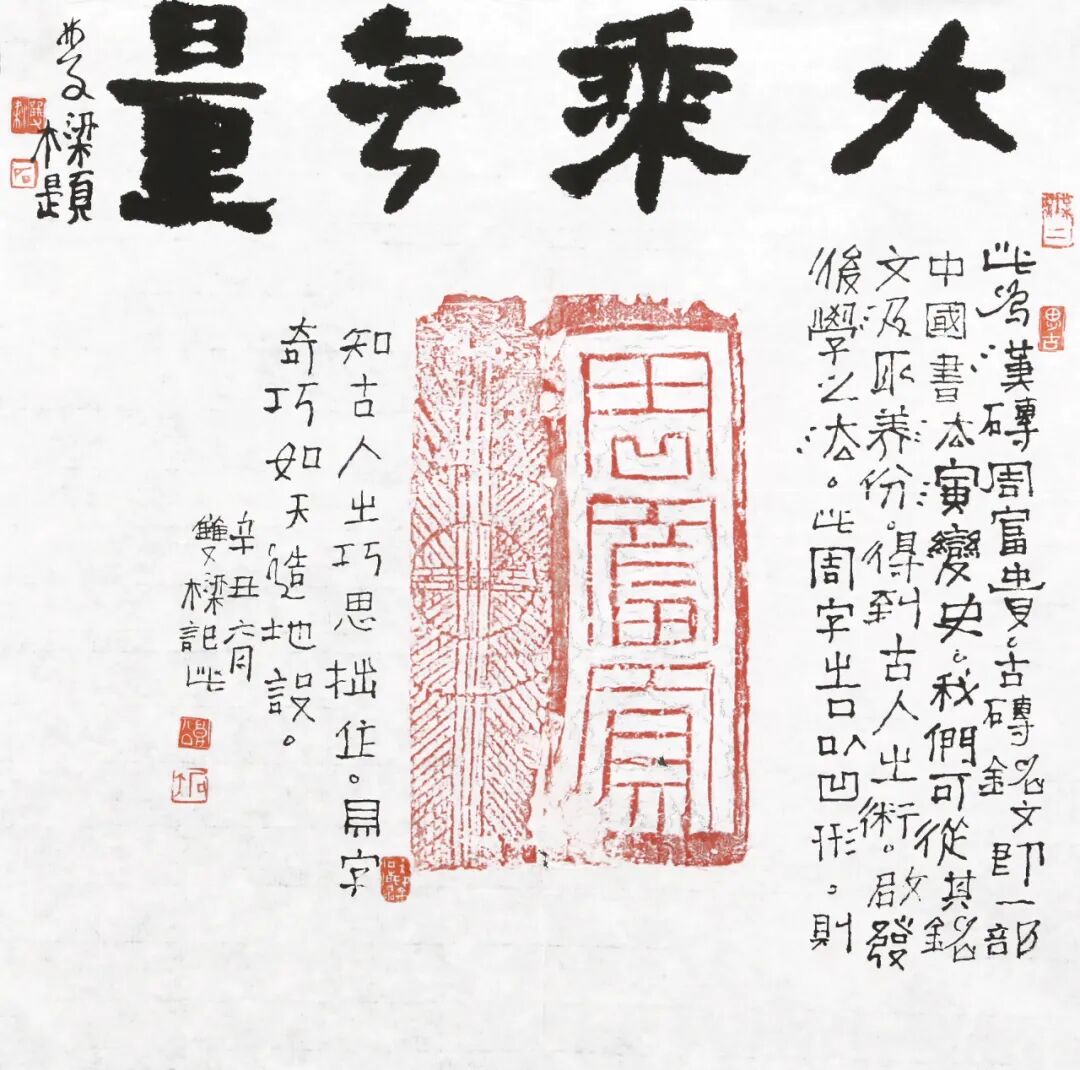 大乘无量
雙樑題
此為漢磚周富貴。古磚銘文即一部
中國書法演變史。我們可從其銘
文汲取養份。得到古人之術。啟發
後學之法。此周字之口以凹形。則
周富貴
知古人之巧思拙作。貝字
奇巧如天造地設。
辛丑六月
雙樑記此
思古